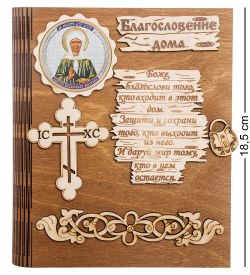 Благословение
дома
Боже,
благослови того,
кто входит в этот
дом.
Защити и сохрани
того, кто выходит
из него.
И даруй мир тому,
кто в нем
остается.
IC
XC
18,5 cm